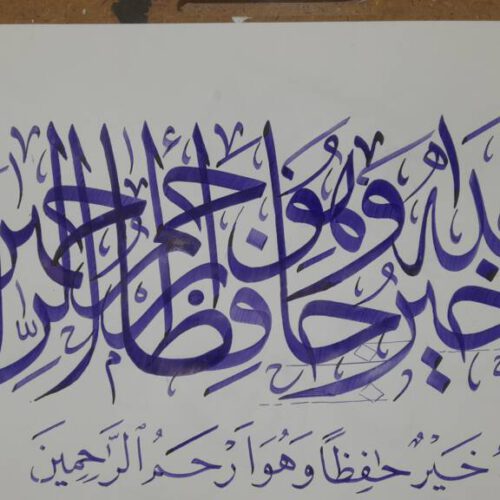 خير حافظا وهو أرحم الراحمين
خَيْرٌ حَٰفِظًا وَهُوَ اَرْحَمُ ٱلرَّٰحِمِينَ